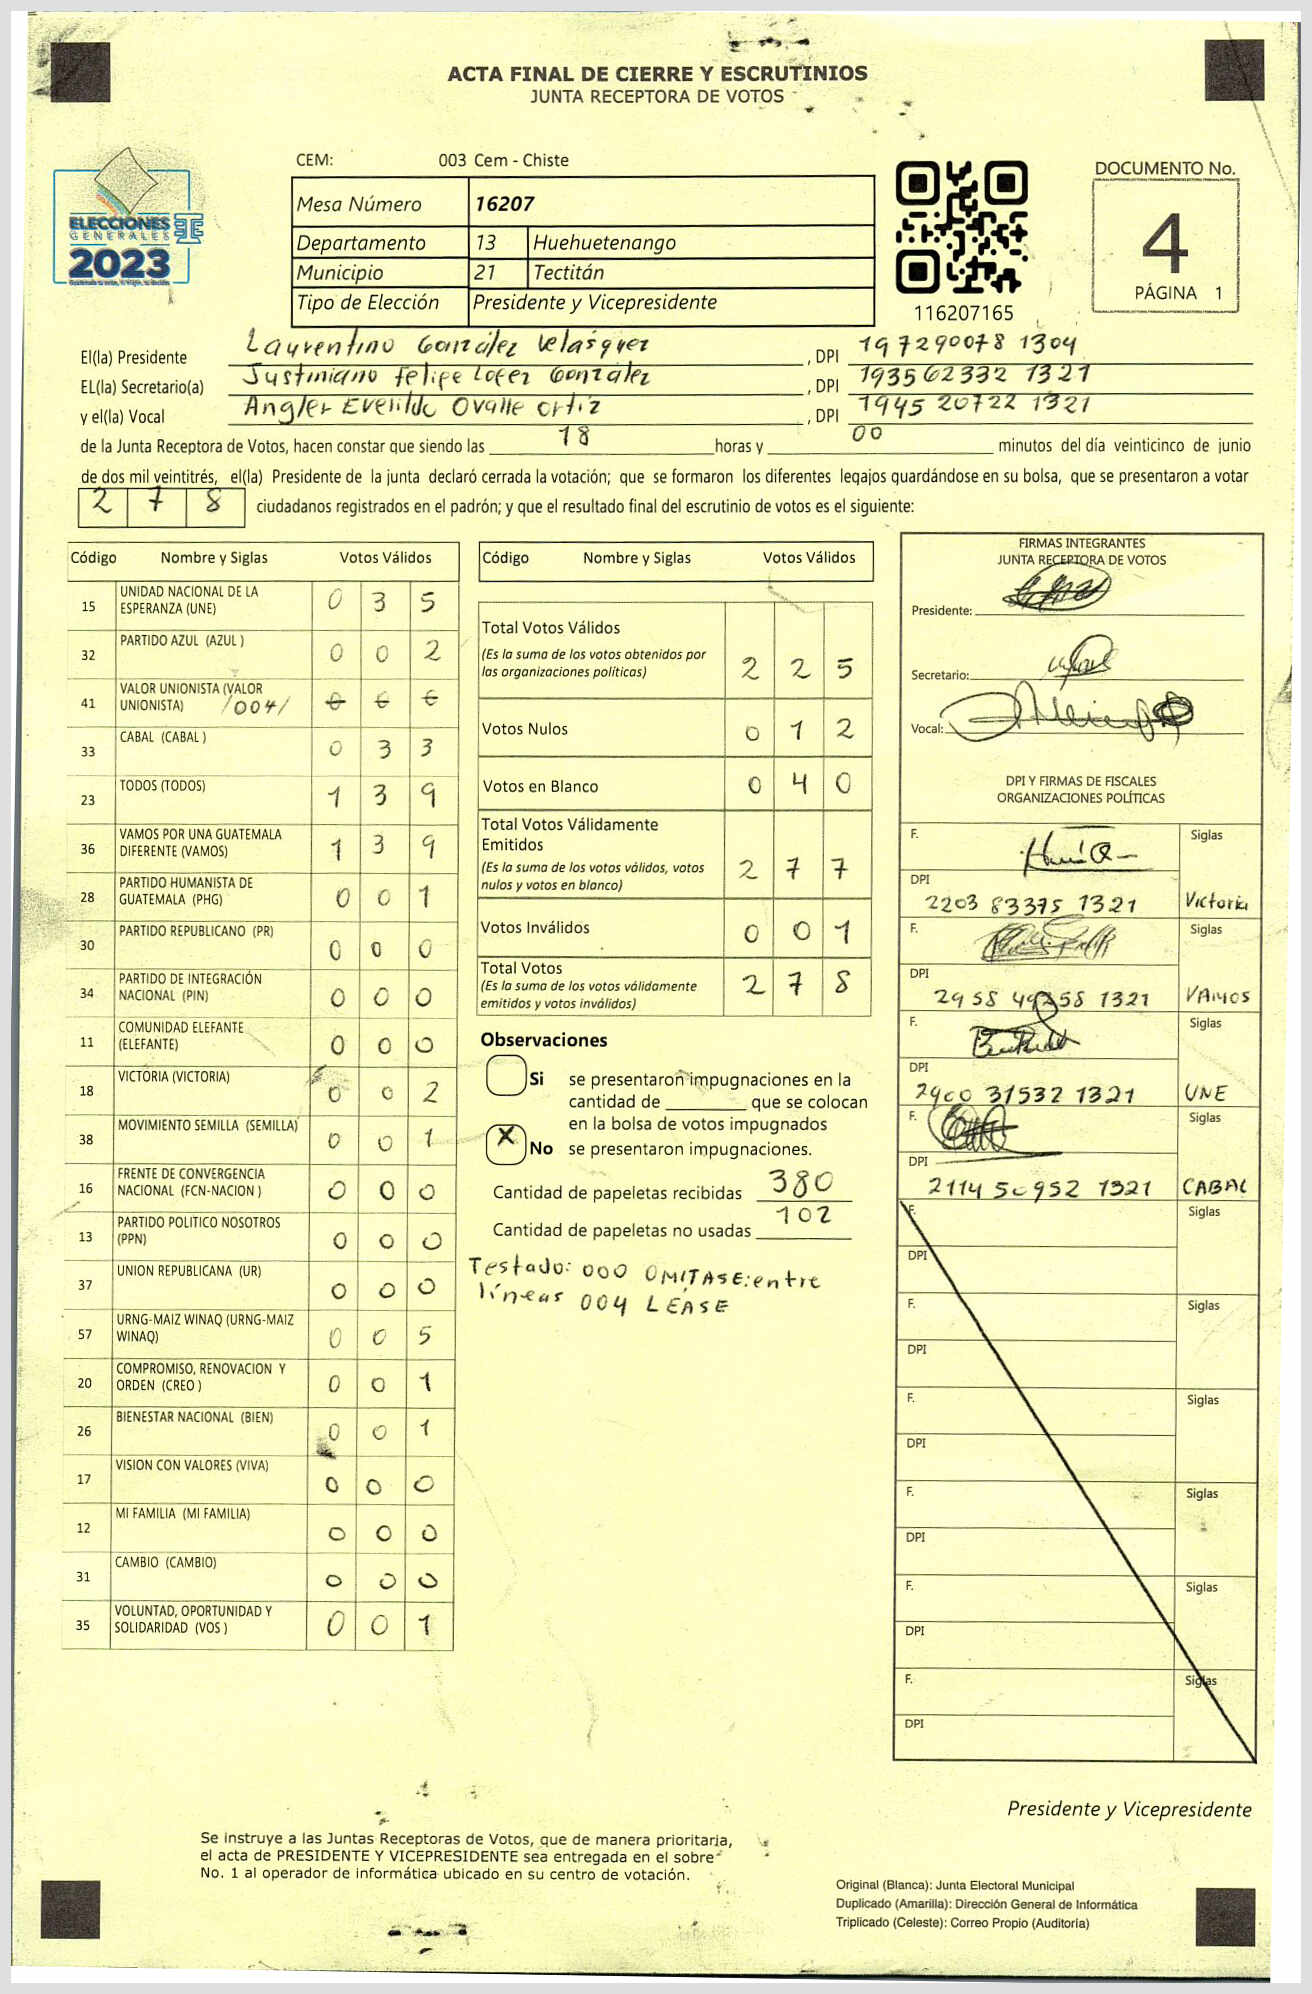 ACTA FINAL DE CIERRE Y ESCRUTINIOS
JUNTA RECEPTORA DE VOTOS
CEM: 003 Cem - Chiste
ELECCIONES
GENERALES
2023
Mesa Número 16207
Departamento 13 Huehuetenango
Municipio 21 Tectitán
Tipo de Elección Presidente y Vicepresidente
116207165
DOCUMENTO No.
4
PÁGINA 1
El(la) Presidente Laurentino González Velásquez, DPI 197290078 1304
EL(la) Secretario(a) Justiniano Felipe Lopez González, DPI 193562332 1321
y el(la) Vocal Angler Everildo Ovalle Ortiz, DPI 1945 20722 1321
de la Junta Receptora de Votos, hacen constar que siendo las 18 horas y 00 minutos del día veinticinco de junio
de dos mil veintitrés, el(la) Presidente de la junta declaró cerrada la votación; que se formaron los diferentes legajos guardándose en su bolsa, que se presentaron a votar
2 7 8 ciudadanos registrados en el padrón; y que el resultado final del escrutinio de votos es el siguiente:
Código Nombre y Siglas Votos Válidos
15 UNIDAD NACIONAL DE LA ESPERANZA (UNE) 0 3 5
32 PARTIDO AZUL (AZUL ) 0 0 2
41 VALOR UNIONISTA (VALOR UNIONISTA) /004/ 0 0 0
33 CABAL (CABAL ) 0 3 3
23 TODOS (TODOS) 1 3 9
36 VAMOS POR UNA GUATEMALA DIFERENTE (VAMOS) 1 3 9
28 PARTIDO HUMANISTA DE GUATEMALA (PHG) 0 0 1
30 PARTIDO REPUBLICANO (PR) 0 0 0
34 PARTIDO DE INTEGRACIÓN NACIONAL (PIN) 0 0 0
11 COMUNIDAD ELEFANTE (ELEFANTE) 0 0 0
18 VICTORIA (VICTORIA) 0 0 2
38 MOVIMIENTO SEMILLA (SEMILLA) 0 0 1
16 FRENTE DE CONVERGENCIA NACIONAL (FCN-NACION ) 0 0 0
13 PARTIDO POLITICO NOSOTROS (PPN) 0 0 0
37 UNION REPUBLICANA (UR) 0 0 0
57 URNG-MAIZ WINAQ (URNG-MAIZ WINAQ) 0 0 5
20 COMPROMISO, RENOVACION Y ORDEN (CREO ) 0 0 1
26 BIENESTAR NACIONAL (BIEN) 0 0 1
17 VISION CON VALORES (VIVA) 0 0 0
12 MI FAMILIA (MI FAMILIA) 0 0 0
31 CAMBIO (CAMBIO) 0 0 0
35 VOLUNTAD, OPORTUNIDAD Y SOLIDARIDAD (VOS ) 0 0 1
Código Nombre y Siglas Votos Válidos
Total Votos Válidos
(Es la suma de los votos obtenidos por las organizaciones políticas) 2 2 5
Votos Nulos 0 1 2
Votos en Blanco 0 4 0
Total Votos Válidamente Emitidos
(Es la suma de los votos válidos, votos nulos y votos en blanco) 2 7 7
Votos Inválidos 0 0 1
Total Votos
(Es la suma de los votos válidamente emitidos y votos inválidos) 2 7 8
Observaciones
Si se presentaron impugnaciones en la
cantidad de ________ que se colocan
en la bolsa de votos impugnados
X No se presentaron impugnaciones.
Cantidad de papeletas recibidas 380
Cantidad de papeletas no usadas 102
Testado: 000 OMITASE: entre
líneas 004 LEASE
FIRMAS INTEGRANTES
JUNTA RECEPTORA DE VOTOS
Presidente:
Secretario:
Vocal:
DPI Y FIRMAS DE FISCALES
ORGANIZACIONES POLÍTICAS
F. Siglas
DPI 2203 83375 1321 Victoria
F. Siglas
DPI 2958 49258 1321 VAMOS
F. Siglas
DPI 2900 31532 1321 UNE
F. Siglas
DPI 2114 50952 1321 CABAL
F. Siglas
DPI
F. Siglas
DPI
F. Siglas
DPI
F. Siglas
DPI
F. Siglas
DPI
F. Siglas
DPI
Presidente y Vicepresidente
Se instruye a las Juntas Receptoras de Votos, que de manera prioritaria,
el acta de PRESIDENTE Y VICEPRESIDENTE sea entregada en el sobre
No. 1 al operador de informática ubicado en su centro de votación.
Original (Blanca): Junta Electoral Municipal
Duplicado (Amarilla): Dirección General de Informática
Triplicado (Celeste): Correo Propio (Auditoría)